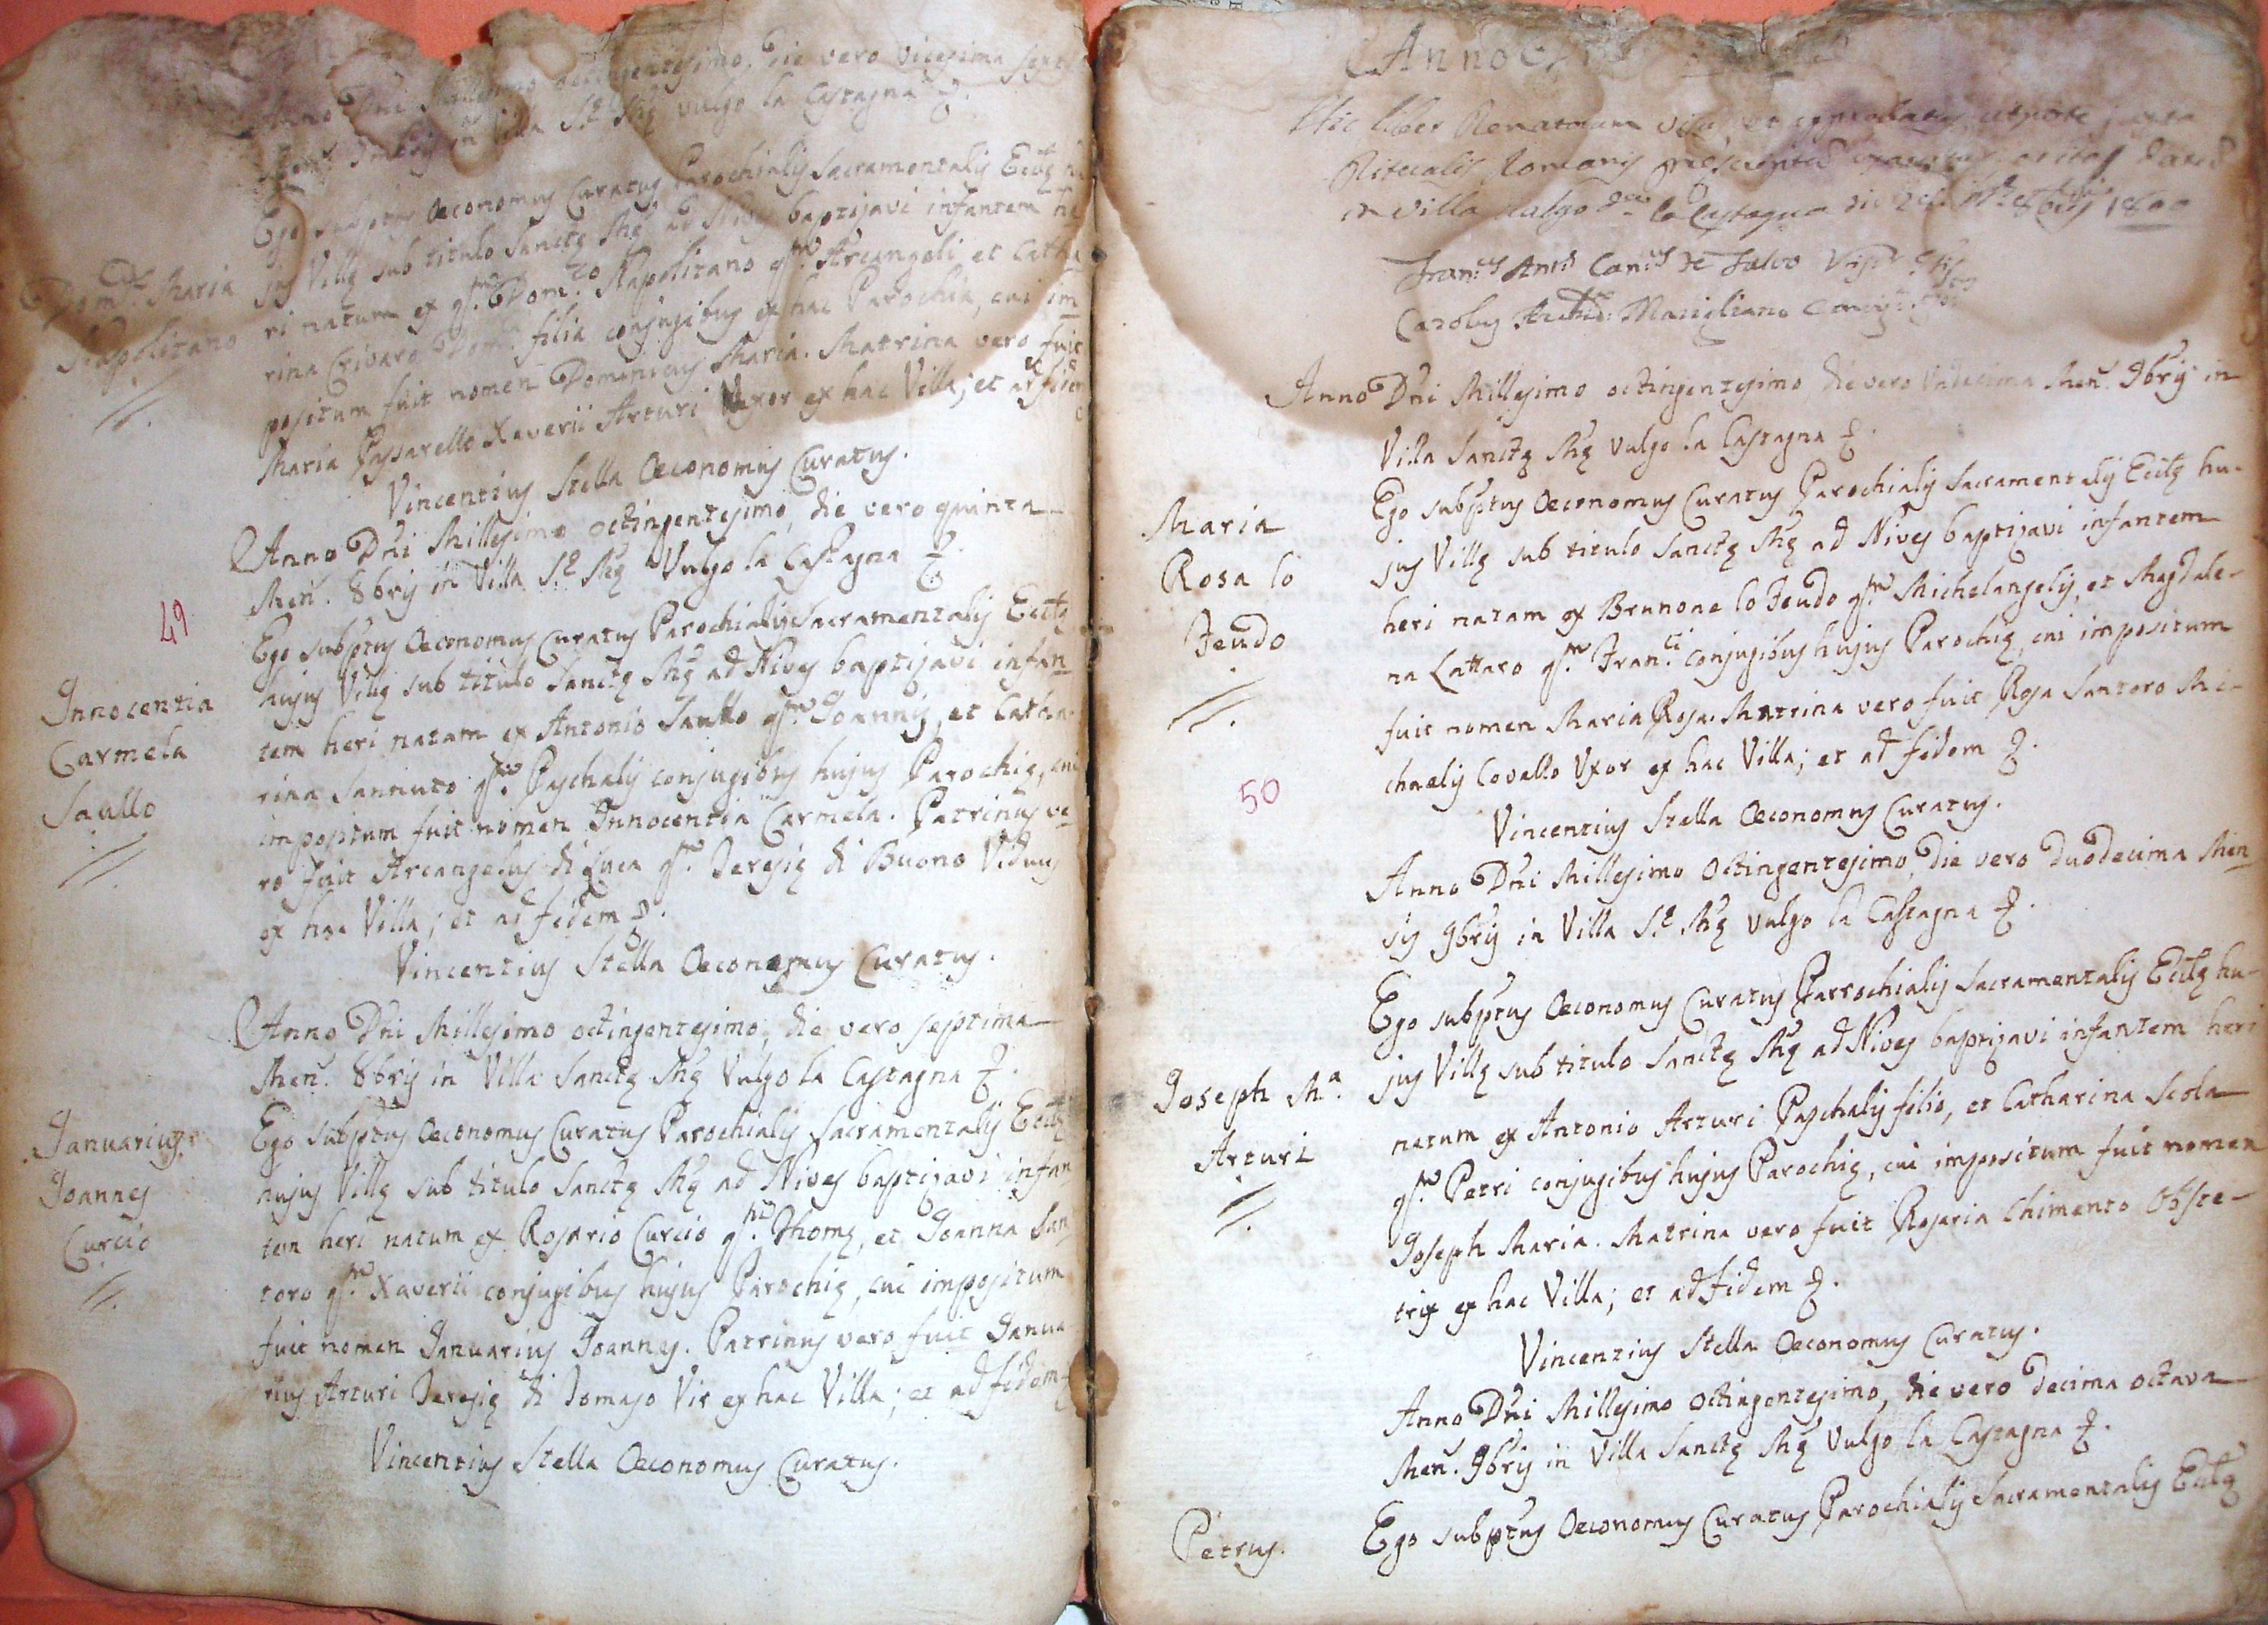 Anno Dñi Millesimo octingentesimo, die vero vicesima sext
in Villa S.ę Mę vulgo la Castagna &.
Dom.cus Maria
Napolitano
Ego Oeconomus Curatus Parochialis Sacramentalis Eccłę
jus Villę sub titulo Sanctę Mę ad Nives baptizavi infantem he
ri natum ex qm. Dom.co Napolitano qm. Arcangeli et Catha
rina Crivaro Dom.ci filia conjugibus ex hac Parochia, cui im
positum fuit nomen Dominicus Maria. Matrina vero fuit
Maria Passarello Xaverii Arturi Uxor ex hac Villa; et ad fidem
Vincentius Stella Oeconomus Curatus.
Anno Dñi Millesimo octingentesimo, die vero quinta
Men. 8bris in Villa S.ę Mę Vulgo la Castagna &.
49
Innocentia
Carmela
Saullo
Ego subptus Oeconomus Curatus Parochialis Sacramentalis Eccłę
hujus Villę sub titulo Sanctę Mę ad Nives baptizavi infan
tem heri natam ex Antonio Saullo qm. Joannis, et Catha
rina Sannuto qm. Paschalis conjugibus hujus Parochię, cui
impositum fuit nomen Innocentia Carmela. Patrinus ve
ro fuit Arcangelus di Luca qm. Teresię di Buono Viduus
ex hac Villa; et ad fidem &.
Vincentius Stella Oeconomus Curatus.
Anno Dñi Millesimo octingentesimo, die vero septima
Men. 8bris in Villa Sanctę Mę Vulgo la Castagna &.
Januarius
Joannes
Curcio
Ego subptus Oeconomus Curatus Parochialis Sacramentalis Eccłę
hujus Villę sub titulo Sanctę Mę ad Nives baptizavi infan
tem heri natum ex Rosario Curcio qm. Thomę, et Joanna San
toro qm. Xaverii conjugibus hujus Parochię, cui impositum
fuit nomen Januarius Joannes. Patrinus vero fuit Janua
rius Arturi Teresię di Tomaso Vir ex hac Villa; et ad fidem
Vincentius Stella Oeconomus Curatus.
Anno
Hic liber Renatorum visus, et approbatus, utpote juxta
Ritualis Romanis
in Villa vulgo la Castagna die 8bris 1800
Fran.cus Ant.s Can.cus de Salvo
Carolus Marigliano
Anno Dñi Millesimo octingentesimo, die vero Undecima Men. 9bris in
Villa Sanctę Mę Vulgo la Castagna &.
Maria
Rosa lo
Feudo
50
Ego subptus Oeconomus Curatus Parochialis Sacramentalis Eccłę hu-
jus Villę sub titulo Sanctę Mę ad Nives baptizavi infantem
heri natam ex Brunone lo Feudo qm. Michelangelis, et Magdale-
na Lattaro qm. Fran.ci conjugibus hujus Parochię, cui impositum
fuit nomen Maria Rosa. Matrina vero fuit Rosa Santoro Mi-
chaelis Covallo Uxor ex hac Villa; et ad fidem &.
Vincentius Stella Oeconomus Curatus.
Anno Dñi Millesimo Octingentesimo, die vero duodecima Men
sis 9bris in Villa S.ę Mę Vulgo la Castagna &.
Joseph M.a
Arturi
Ego subptus Oeconomus Curatus Parrochialis Sacramentalis Eccłę hu-
jus Villę sub titulo Sanctę Mę ad Nives baptizavi infantem heri
natum ex Antonio Arturi Paschalis filio, et Catharina Scola
qm. Petri conjugibus hujus Parochię, cui impositum fuit nomen
Joseph Maria. Matrina vero fuit Rosaria Chimento Obste-
trix ex hac Villa; et ad fidem &.
Vincentius Stella Oeconomus Curatus.
Anno Dñi Millesimo Octingentesimo, die vero decima octava
Men. 9bris in Villa Sanctę Mę Vulgo la Castagna &.
Petrus.
Ego subptus Oeconomus Curatus Parochialis Sacramentalis Eccłę